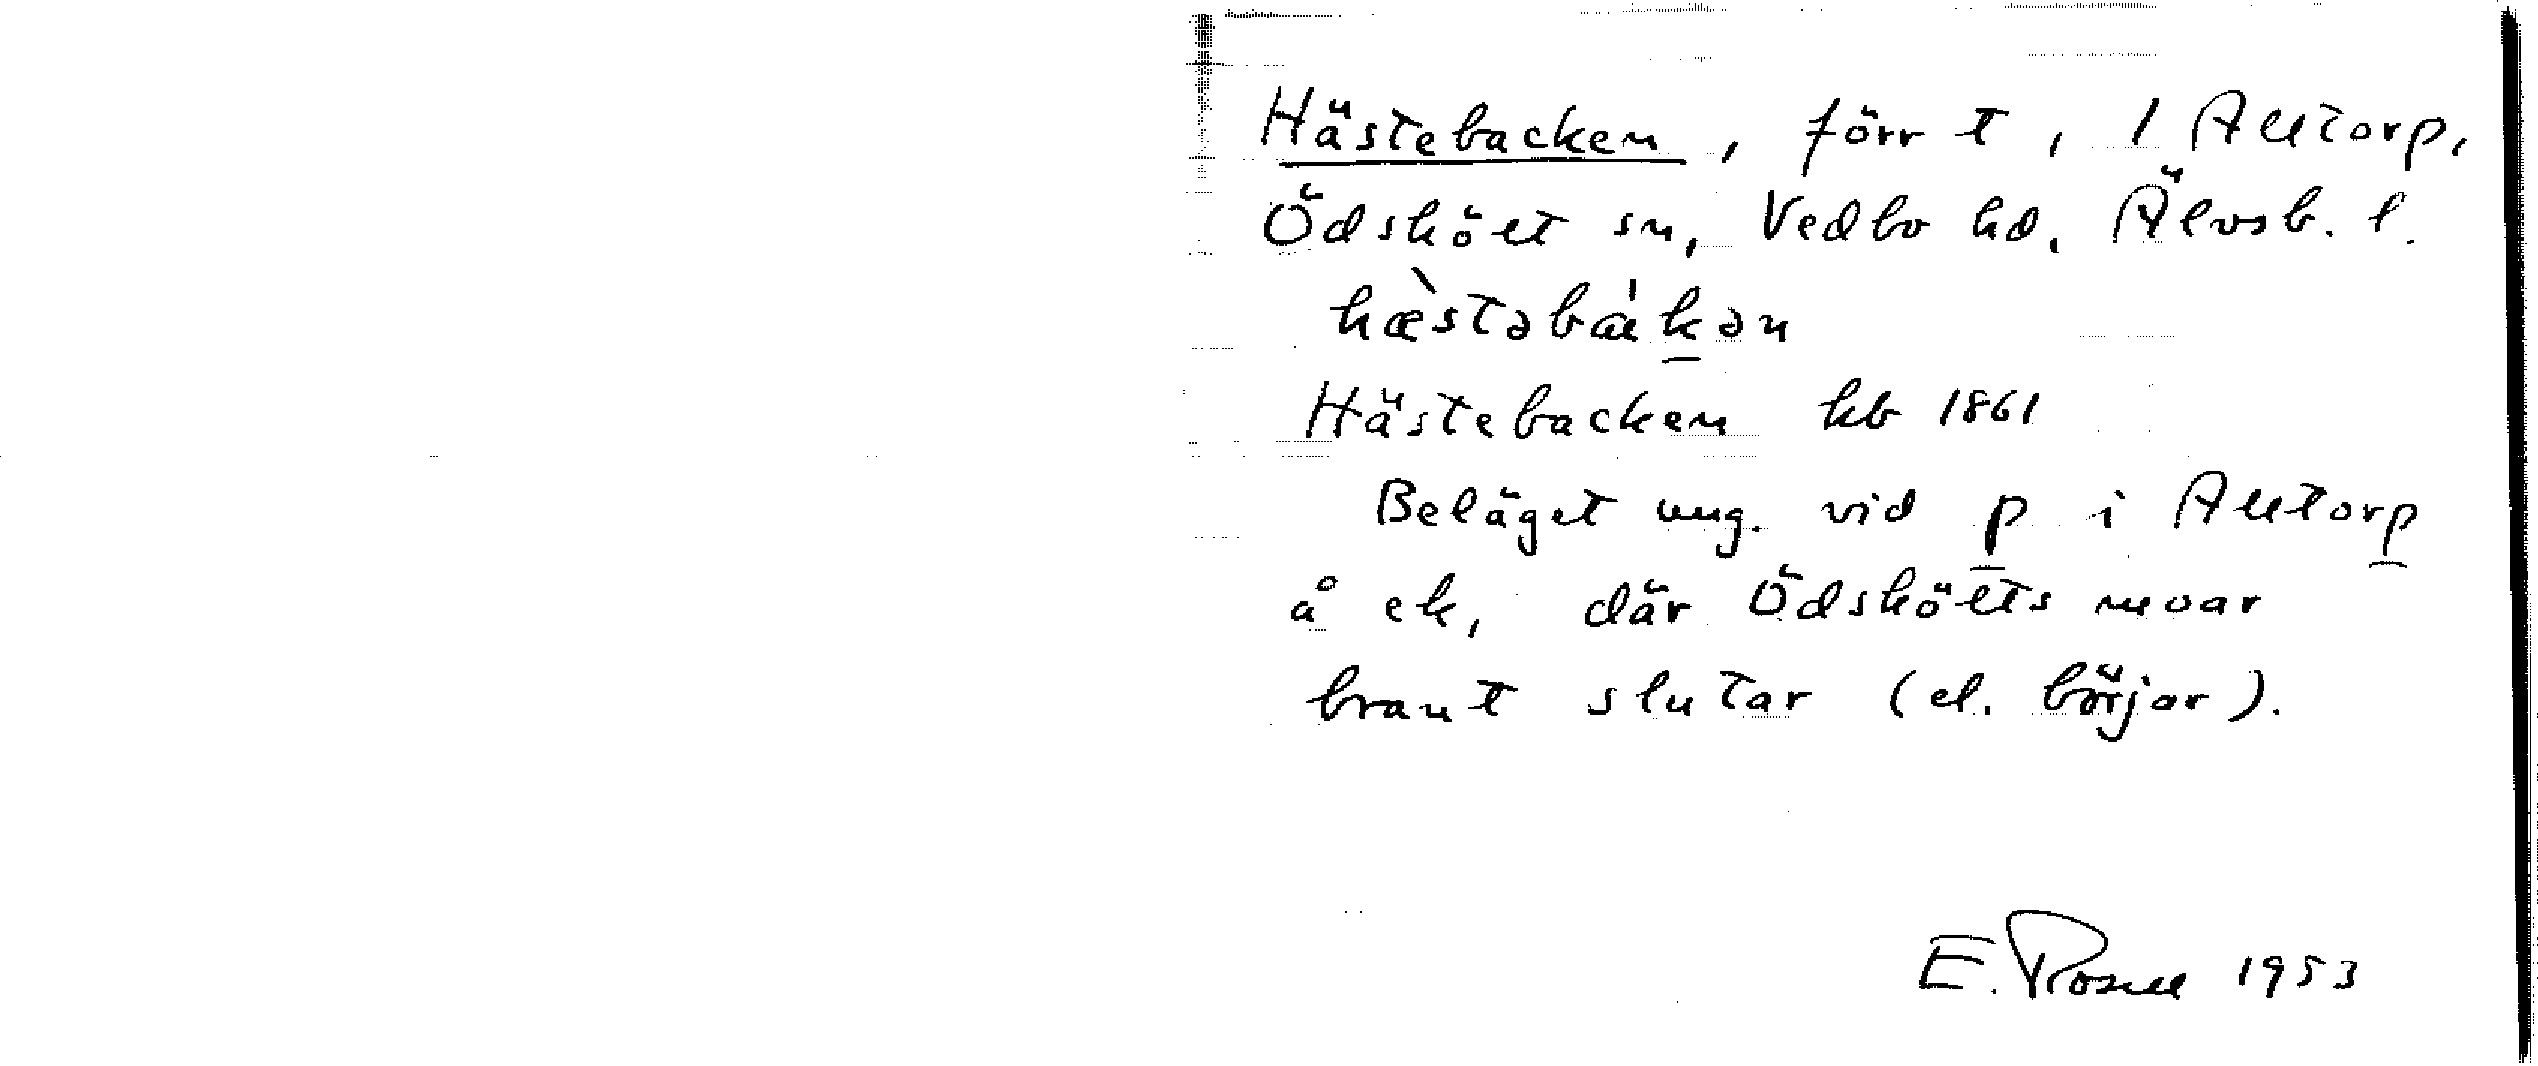 Hästebacken, förr t, 1 Alltorp,
Ödskölt sn, Vedbo hd. Älvsb. l.
hæ̀stəbákən
Hästebacken kb 1861
Beläget ung. vid p i Alltorp
å ek, där Ödskölts moar
brant slutar (el. börjar).
E. Rosell 1953